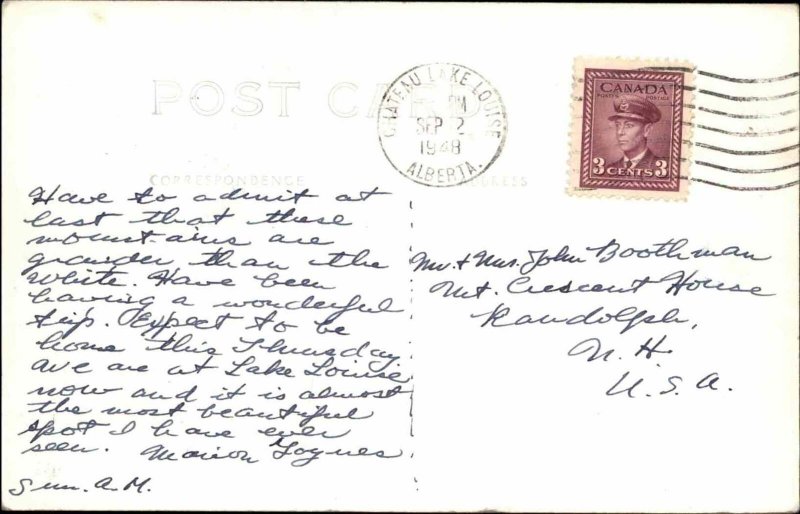 POST CARD
CHATEAU LAKE LOUISE
PM
SEP 12
1948
ALBERTA.
CANADA
POSTES POSTAGE
3 CENTS 3
CORRESPONDENCE
ADDRESS
Have to admit at
last that these
mountains are
grander than the
White. Have been
having a wonderful
trip. Expect to be
home this Thursday
We are at Lake Louise
now and it is almost
the most beautiful
spot I have ever
seen. Marion
Sun. A.M.
Mr. & Mrs. John Boothman
Mt. Crescent House
Randolph,
N. H.
U. S. A.